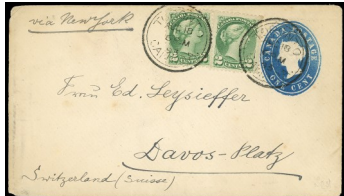 via New York
CANADA POSTAGE
ONE CENT
2 CENTS 2
Frau Ed. Leysieffer
Davos-Platz
Switzerland (Suisse)